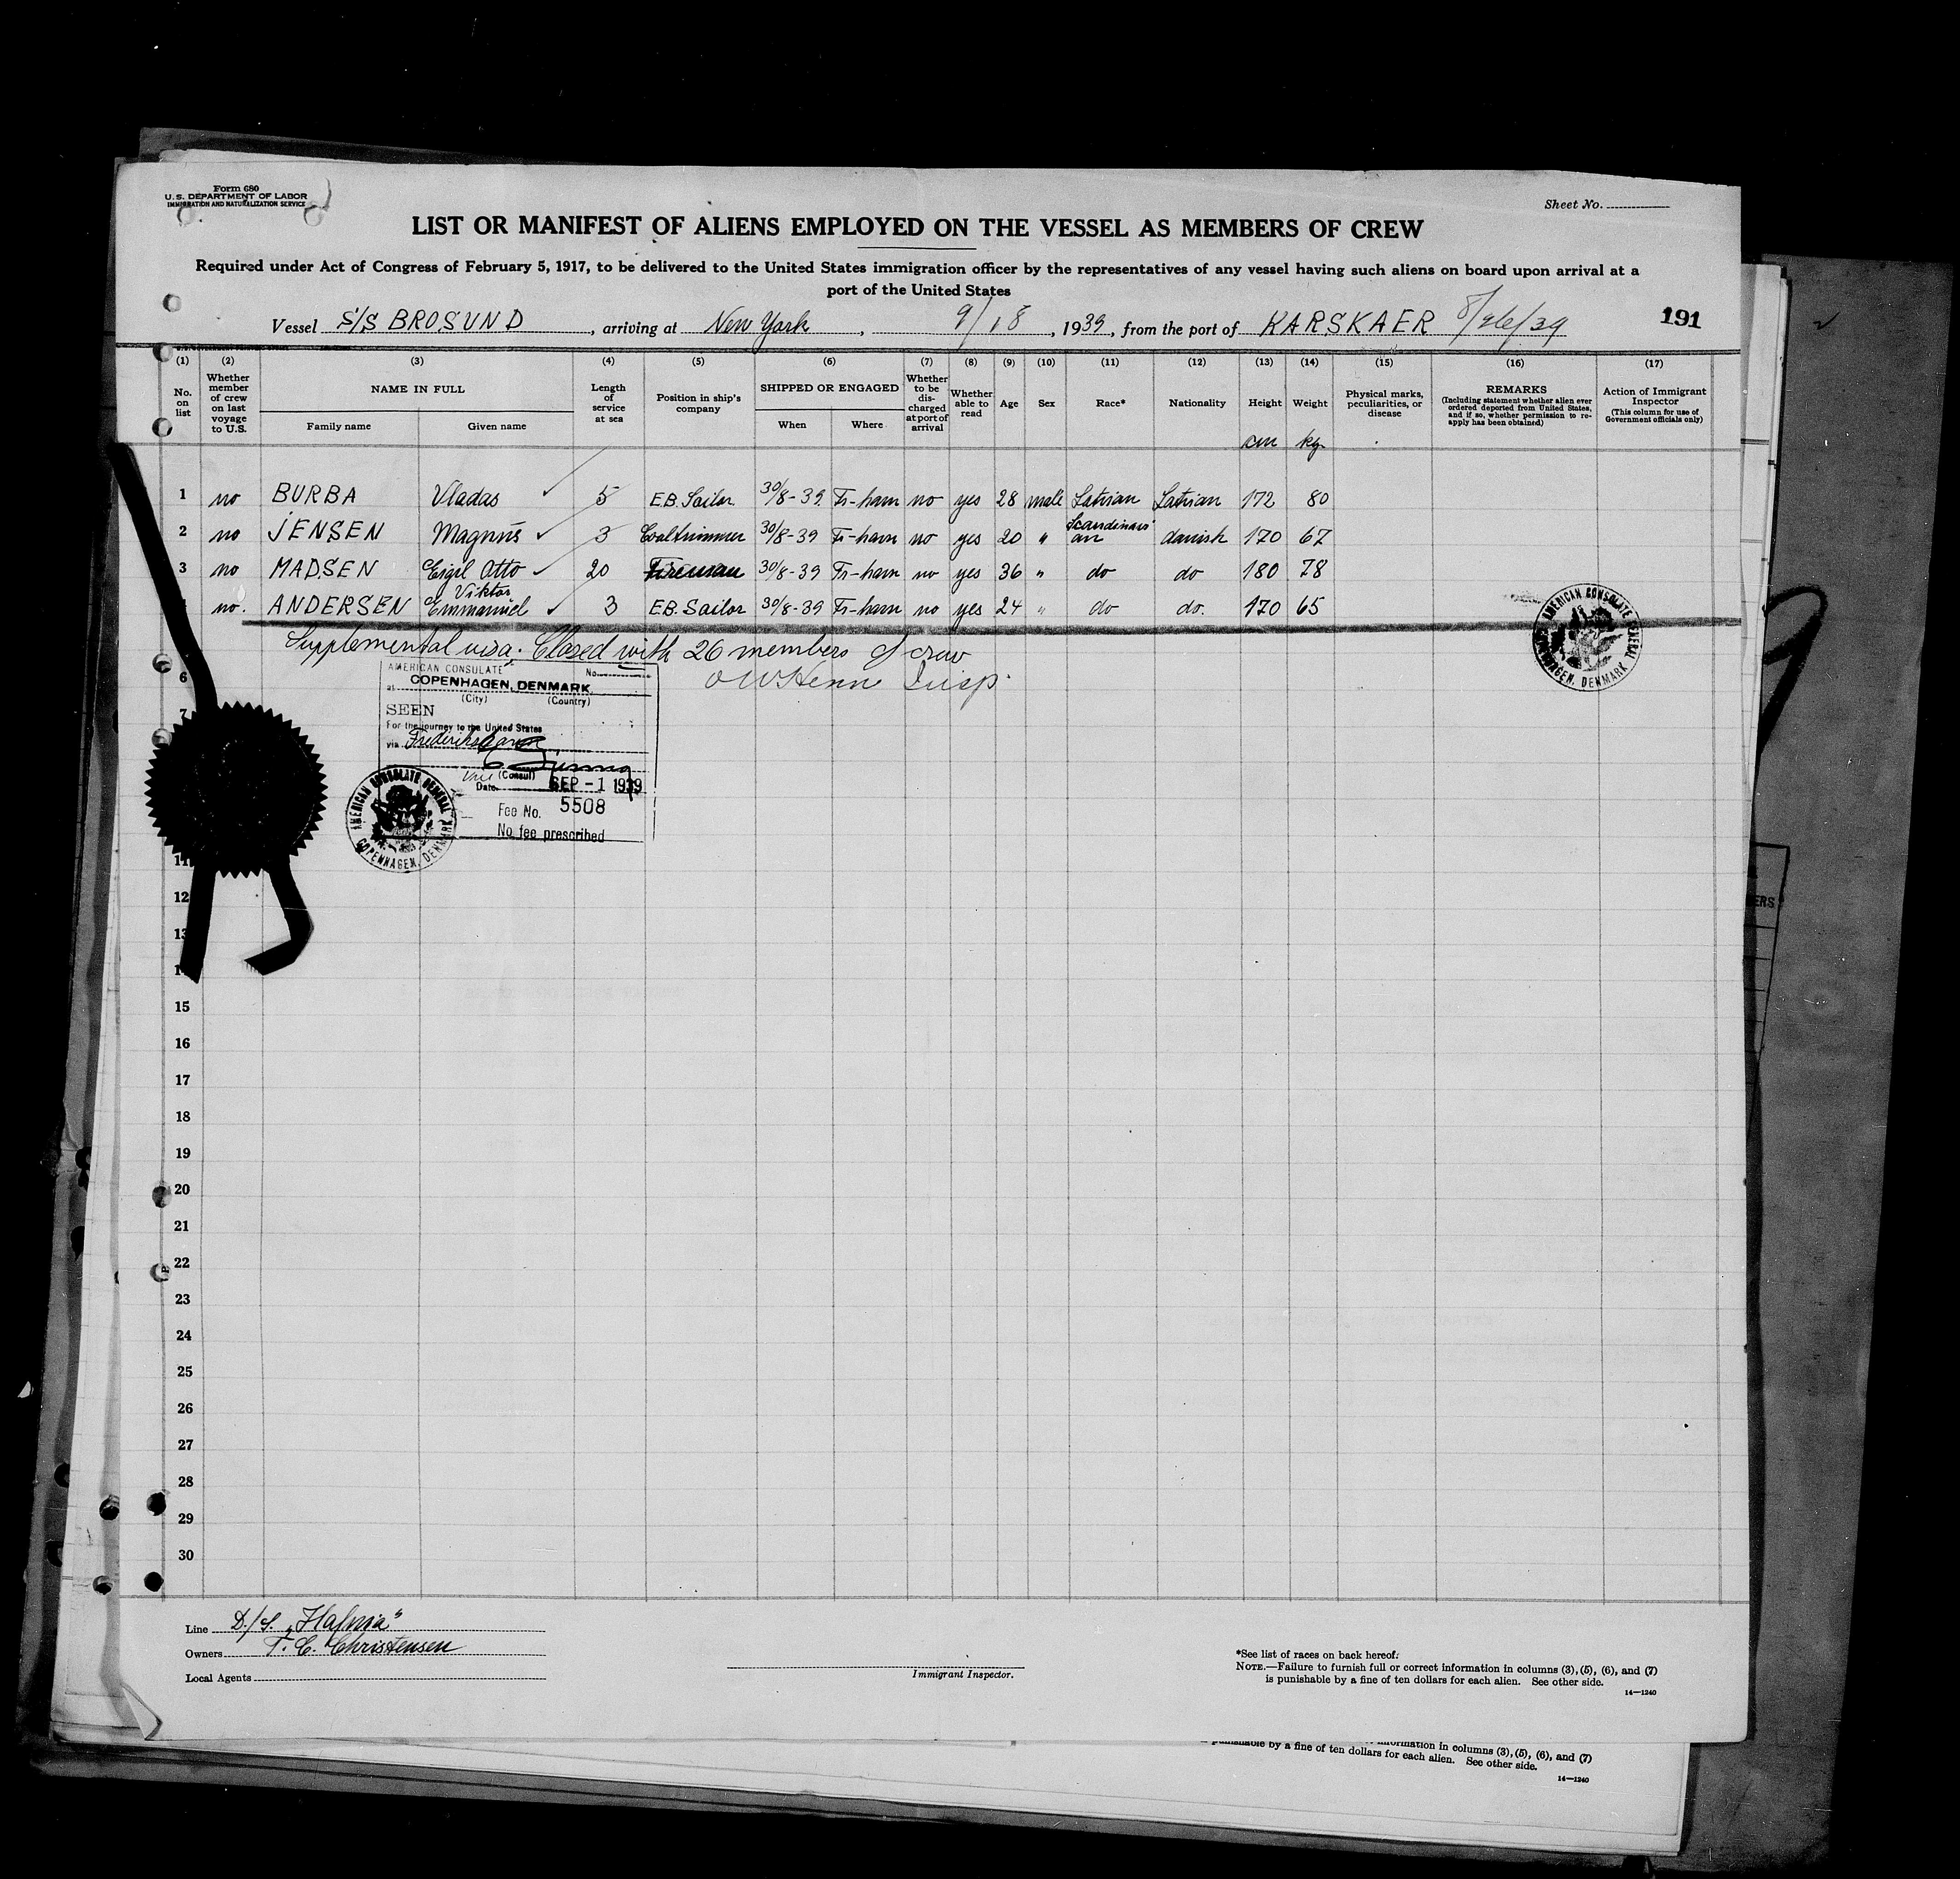 Form 680
U.S. DEPARTMENT OF LABOR
IMMIGRATION AND NATURALIZATION SERVICE
Sheet No.
LIST OR MANIFEST OF ALIENS EMPLOYED ON THE VESSEL AS MEMBERS OF CREW
Required under Act of Congress of February 5, 1917, to be delivered to the United States immigration officer by the representatives of any vessel having such aliens on board upon arrival at a
port of the United States
Vessel S/S BROSUND, arriving at New York, 9/18, 1939, from the port of KARSKAER 8/26/39 191
(1) (2) (3) (4) (5) (6) (7) (8) (9) (10) (11) (12) (13) (14) (15) (16) (17)
No. on list
Whether member of crew on last voyage to U.S.
NAME IN FULL
Family name
Given name
Length of service at sea
Position in ship's company
SHIPPED OR ENGAGED
When
Where
Whether to be discharged at port of arrival
Whether able to read
Age
Sex
Race*
Nationality
Height
cm
Weight
kg.
Physical marks, peculiarities, or disease
REMARKS
(Including statement whether alien ever ordered deported from United States, and if so, whether permission to re-apply has been obtained)
Action of Immigrant Inspector
(This column for use of Government officials only)
1 no BURBA Vladas ✓ 5 E.B. Sailor. 30/8-39 Fr-havn no yes 28 male Latvian Latvian 172 80
2 no JENSEN Magnus ✓ 3 Coaltrimmer 30/8-39 Fr-havn no yes 20 " Scandinavian danish 170 67
3 no MADSEN Eigil Otto ✓ 20 Fireman 30/8-39 Fr-havn no yes 36 " do do 180 78
no. ANDERSEN Viktor Emmanuel ✓ 3 E.B. Sailor 30/8-39 Fr-havn no yes 24 " do do. 170 65
Supplemental visa. Closed with 26 members of crew
Insp.
AMERICAN CONSULATE No.
at COPENHAGEN, DENMARK
(City) (Country)
SEEN
For the journey to the United States
via Frederikshavn
Vice (Consul)
Date SEP - 1 1939
Fee No. 5508
No fee prescribed
AMERICAN CONSULATE GENERAL
COPENHAGEN, DENMARK
AMERICAN CONSULATE GENERAL
COPENHAGEN, DENMARK
6
7
11
12
13
15
16
17
18
19
20
21
22
23
24
25
26
27
28
29
30
Line D./S. „Hafnia"
Owners T. C. Christensen
Local Agents
Immigrant Inspector.
*See list of races on back hereof.
NOTE.—Failure to furnish full or correct information in columns (3), (5), (6), and (7)
is punishable by a fine of ten dollars for each alien. See other side.
14—1240
information in columns (3), (5), (6), and (7)
punishable by a fine of ten dollars for each alien. See other side.
14—1240